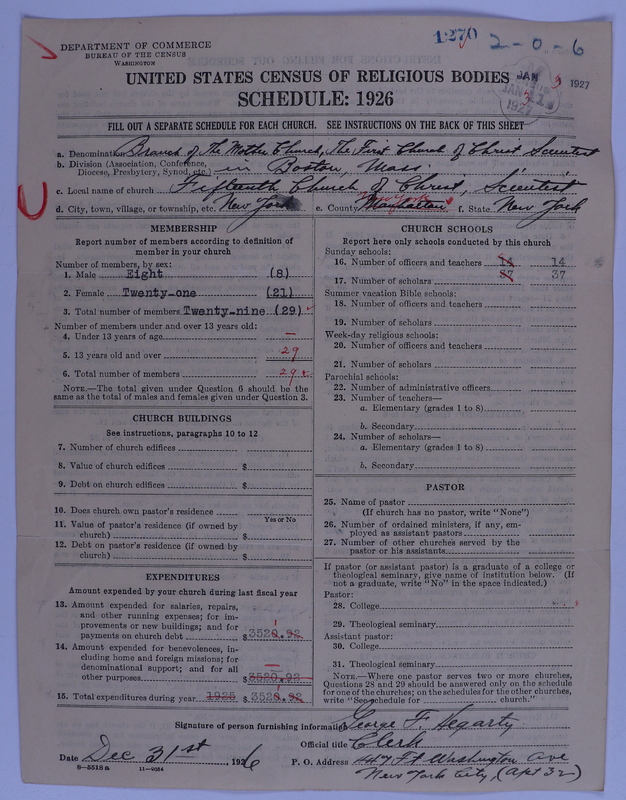 DEPARTMENT OF COMMERCE
BUREAU OF THE CENSUS
WASHINGTON
1270
2-0-6
JAN 3 1927
UNITED STATES CENSUS OF RELIGIOUS BODIES
SCHEDULE: 1926
FILL OUT A SEPARATE SCHEDULE FOR EACH CHURCH. SEE INSTRUCTIONS ON THE BACK OF THIS SHEET
a. Denomination Branch of The Mother Church, The First Church of Christ Scientist
b. Division (Association, Conference, Diocese, Presbytery, Synod, etc.) in Boston, Mass.
c. Local name of church Fifteenth Church of Christ, Scientist
d. City, town, village, or township, etc. New York e. County Manhattan New York f. State New York
MEMBERSHIP
Report number of members according to definition of
member in your church
Number of members, by sex:
1. Male Eight (8)
2. Female Twenty-one (21)
3. Total number of members Twenty-nine (29)
Number of members under and over 13 years old:
4. Under 13 years of age –
5. 13 years old and over 29
6. Total number of members 29
NOTE.—The total given under Question 6 should be the
same as the total of males and females given under Question 3.
CHURCH BUILDINGS
See instructions, paragraphs 10 to 12
7. Number of church edifices
8. Value of church edifices $
9. Debt on church edifices $
10. Does church own pastor's residence
Yes or No
11. Value of pastor's residence (if owned by
church) $
12. Debt on pastor's residence (if owned by
church) $
EXPENDITURES
Amount expended by your church during last fiscal year
13. Amount expended for salaries, repairs,
and other running expenses; for im-
provements or new buildings; and for
payments on church debt $ 3520.92
14. Amount expended for benevolences, in-
cluding home and foreign missions; for
denominational support; and for all
other purposes $ 3520.92
15. Total expenditures during year 1925 $ 3520.92
CHURCH SCHOOLS
Report here only schools conducted by this church
Sunday schools:
16. Number of officers and teachers 14 14
17. Number of scholars 37 37
Summer vacation Bible schools:
18. Number of officers and teachers
19. Number of scholars
Week-day religious schools:
20. Number of officers and teachers
21. Number of scholars
Parochial schools:
22. Number of administrative officers
23. Number of teachers—
a. Elementary (grades 1 to 8)
b. Secondary
24. Number of scholars—
a. Elementary (grades 1 to 8)
b. Secondary
PASTOR
25. Name of pastor
(If church has no pastor, write "None")
26. Number of ordained ministers, if any, em-
ployed as assistant pastors
27. Number of other churches served by the
pastor or his assistants
If pastor (or assistant pastor) is a graduate of a college or
theological seminary, give name of institution below. (If
not a graduate, write "No" in the space indicated.)
Pastor:
28. College
29. Theological seminary
Assistant pastor:
30. College
31. Theological seminary
NOTE.—Where one pastor serves two or more churches,
Questions 28 and 29 should be answered only on the schedule
for one of the churches; on the schedules for the other churches,
write "See schedule for church."
Signature of person furnishing information George F. Hegarty
Official title Clerk
Date Dec 31st, 1926
P. O. Address 447 Ft Washington Ave
New York City, (Apt 32)
8—5518 a 11—9054